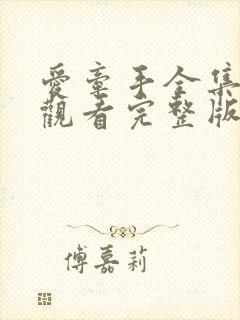 愛牽手全集
觀看完整版
傅嘉莉